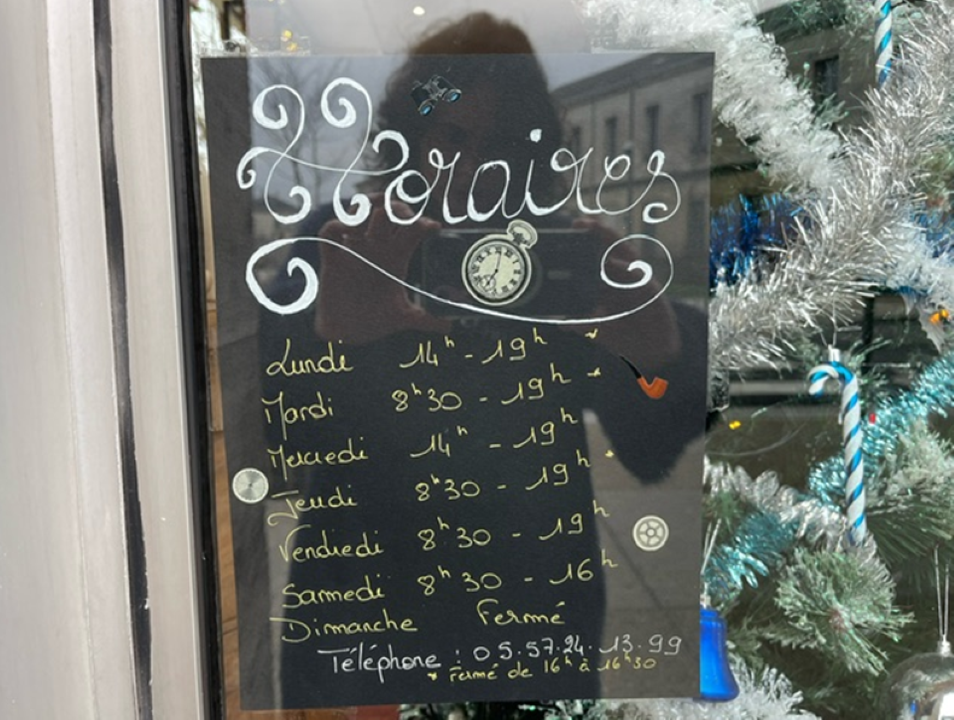 Horaires
Lundi 14h - 19h *
Mardi 8h30 - 19h *
Mercredi 14h - 19h
Jeudi 8h30 - 19h *
Vendredi 8h30 - 19h
Samedi 8h30 - 16h
Dimanche Fermé
Téléphone : 05.57.24.13.99
* fermé de 16h à 16h30